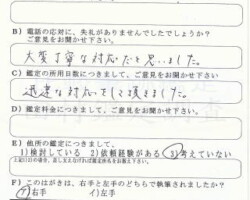 B) 電話の応対に、失礼がありませんでしたでしょうか?
ご意見をお聞かせ下さい。
大変丁寧な対応だと思いました。
C) 鑑定の所用日数につきまして、ご意見をお聞かせ下さい。
迅速な対応をして頂きました。
D) 鑑定料金につきまして、ご意見をお聞かせ下さい。
E) 他所の鑑定につきまして、
1)検討している 2)依頼経験がある 3)考えていない
F) このはがきは、右手と左手のどちらで執筆されましたか?
ア)右手 イ)左手